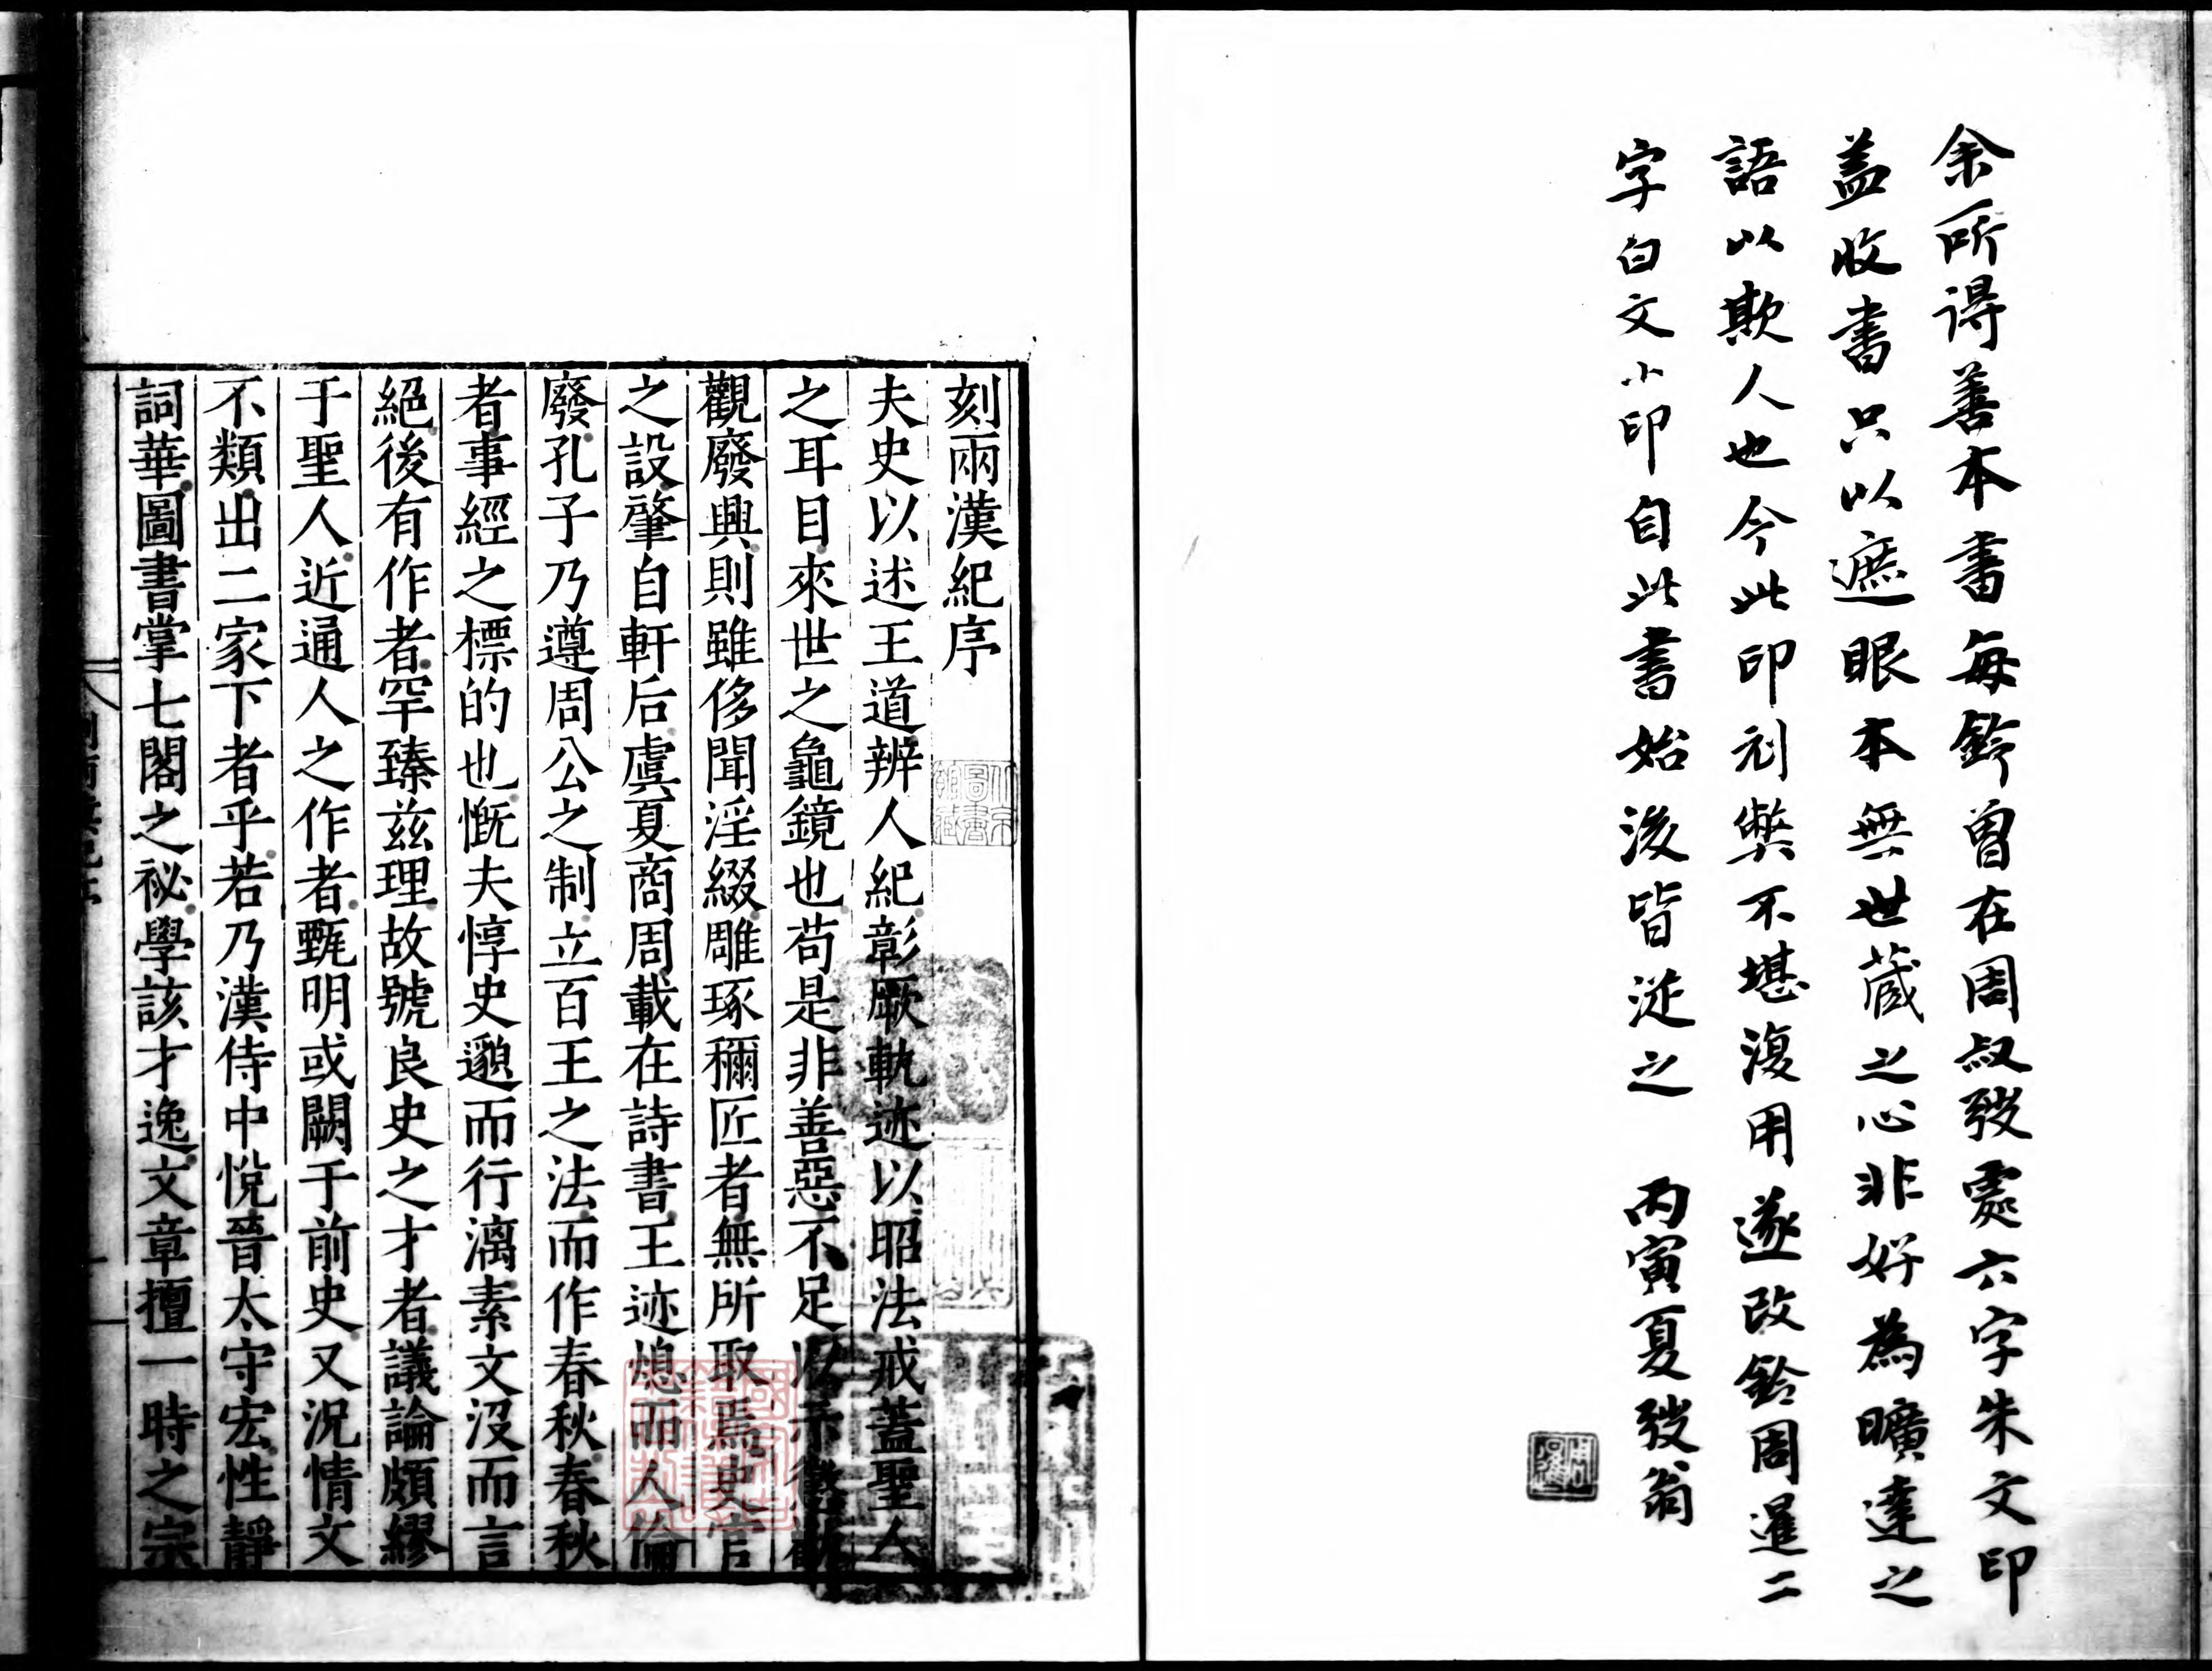 余所得善本書每鈐曾在周叔弢處六字朱文印
盖收書只以遮眼本無世藏之心非好為曠達之
語以欺人也今此印刓獘不堪復用遂改鈐周暹二
字白文小印自此書始後皆從之 丙寅夏弢翁
周暹
刻兩漢紀序
夫史以述王道辨人紀彰厥軌迹以昭法戒蓋聖人
之耳目來世之龜鏡也苟是非善惡不足以示懲勸
觀廢興則雖侈聞淫綴雕琢穪匠者無所取焉史官
之設肇自軒后虞夏商周載在詩書王迹熄而人倫
廢孔子乃遵周公之制立百王之法而作春秋春秋
者事經之標的也慨夫惇史邈而行漓素文沒而言
絕後有作者罕臻兹理故號良史之才者議論頗繆
于聖人近通人之作者甄明或闕于前史又況情文
不類出二家下者乎若乃漢侍中悅晉太守宏性靜
詞華圖書掌七閣之祕學該才逸文章擅一時之宗